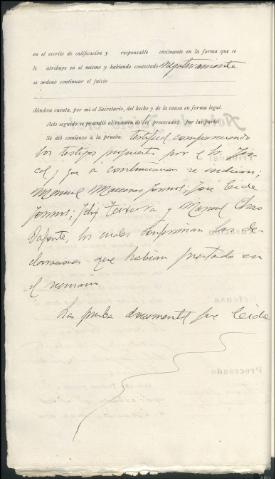 en el escrito de calificación y responsable civilmente en la forma que se
le atribuye en el mismo y habiendo contestado negativamente
se ordenó continuar el juicio
Dándose cuenta, por mí el Secretario, del hecho y de la causa en forma legal.
Acto seguido se procedió al examen de los procesados por las partes
Se dió comienzo a la prueba testifical compareciendo
los testigos propuestos por el Sr. Fis-
cal, que a continuación se indican;
Manuel , José
y Manuel
los cuales confirman las de-
claraciones que habían prestado en
el sumario
La prueba documental fue leída